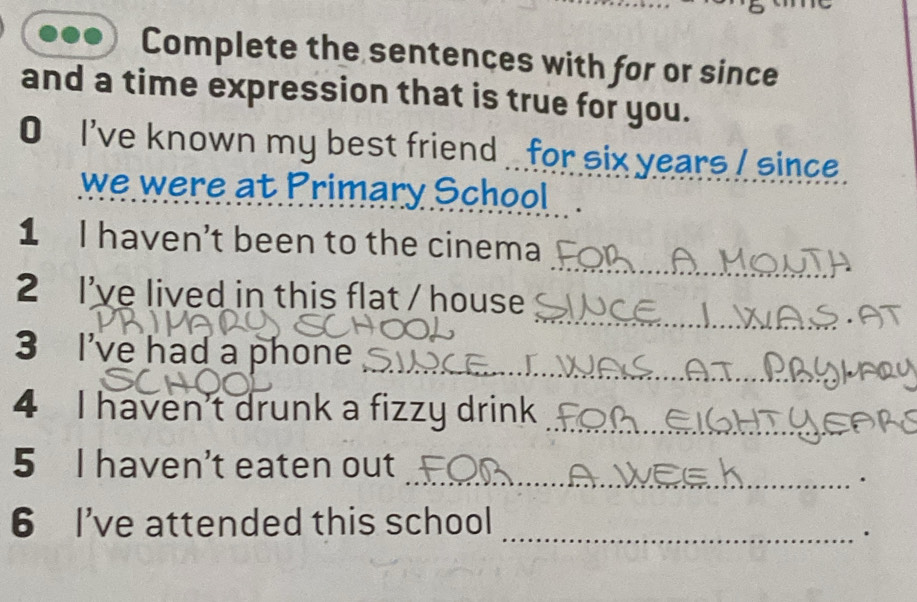 Complete the sentences with for or since
and a time expression that is true for you.
0 I've known my best friend for six years / since
we were at Primary School.
1 I haven't been to the cinema FOR A MONTH
2 I've lived in this flat / house SINCE I WAS AT
PRIMARY SCHOOL
3 I've had a phone SINCE I WAS AT PRYMARY
SCHOOL
4 I haven't drunk a fizzy drink FOR EIGHT YEARS
5 I haven't eaten out FOR A WEEK.
6 I've attended this school .